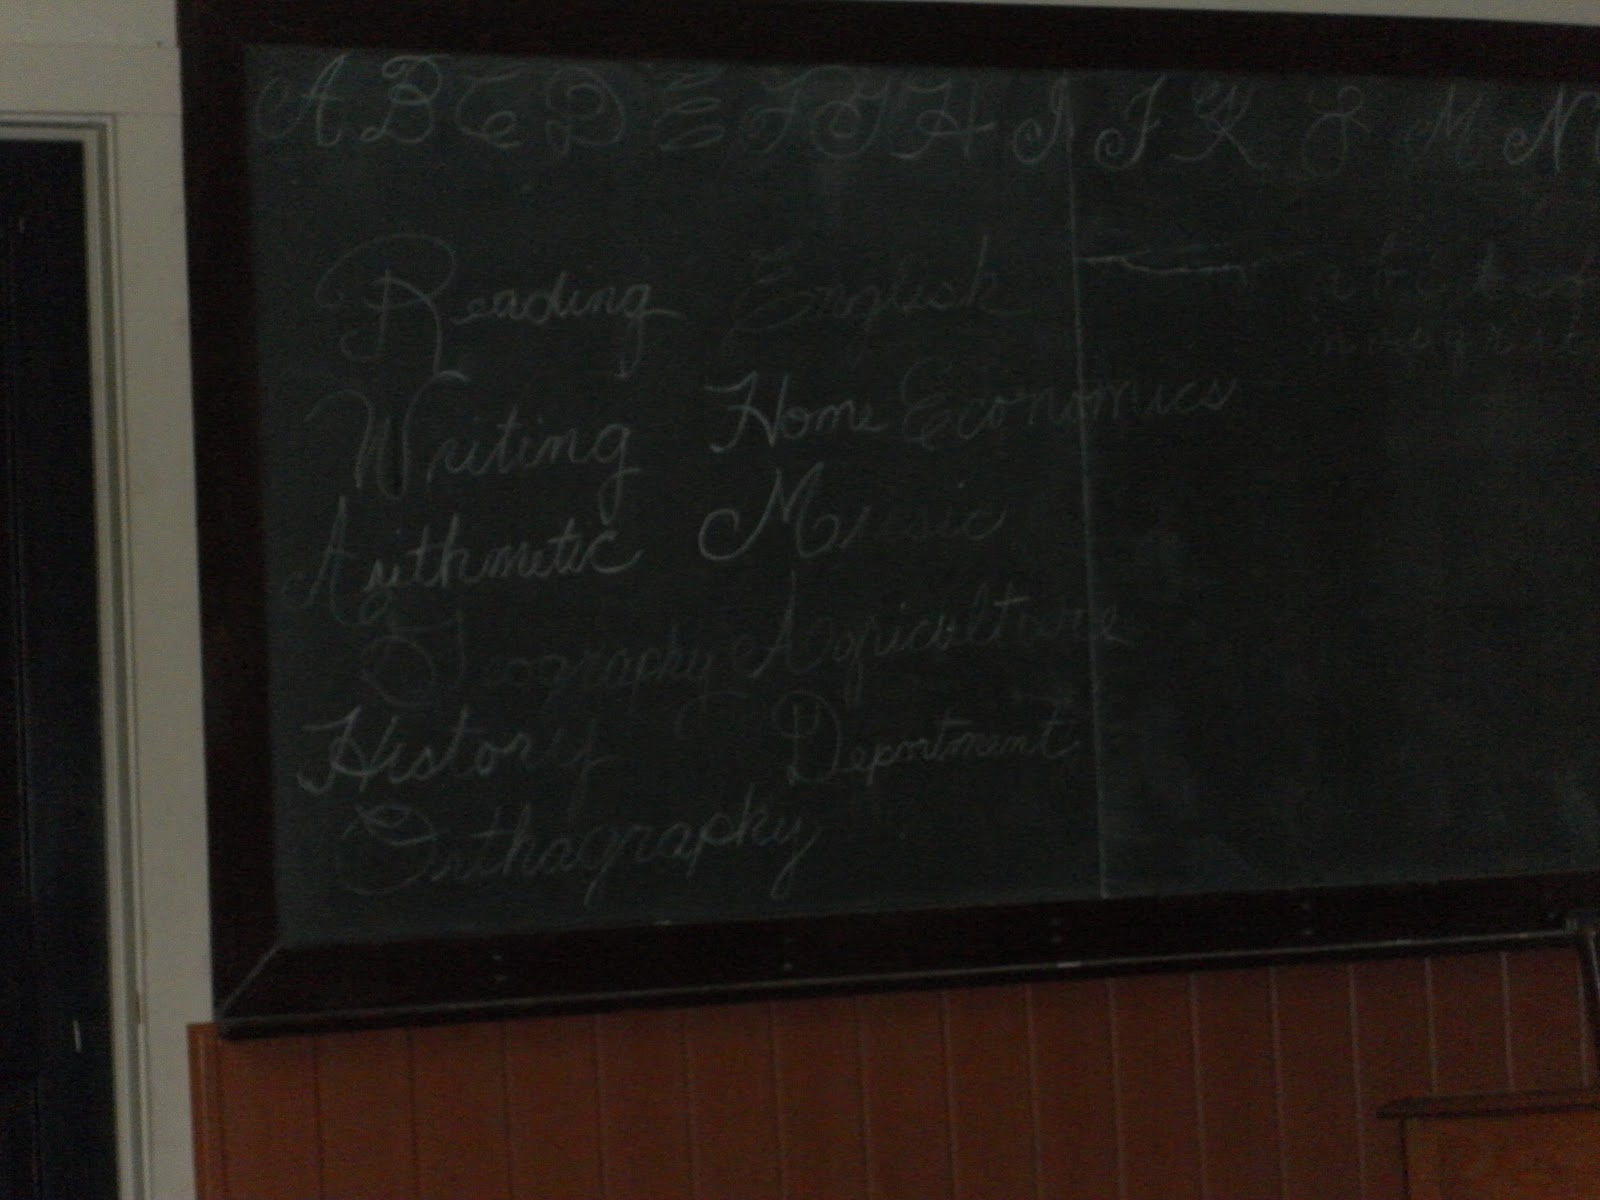 A B C D E F G H I J K L M N
Reading English
a b c d e f
Writing Home Economics
Arithmetic Music
Geography Agriculture
History Deportment
Orthagraphy